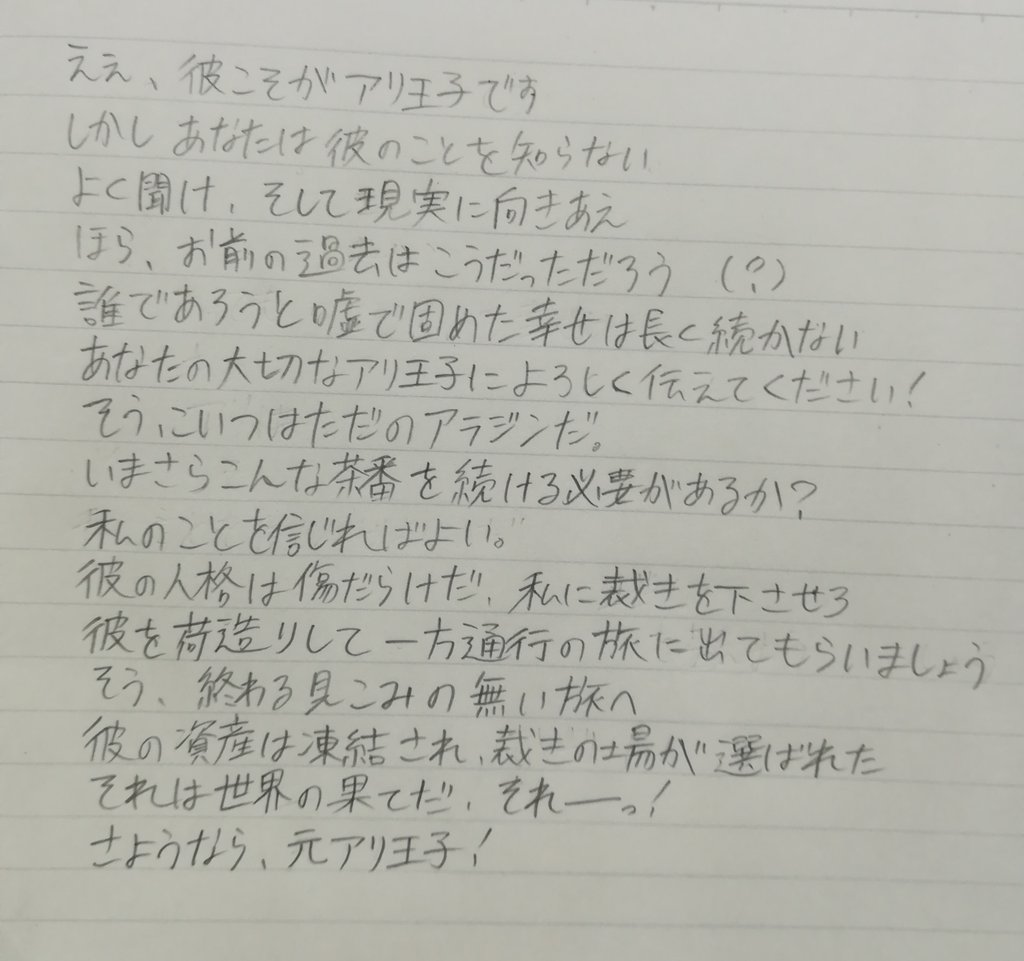 ええ、彼こそがアリ王子です
しかし あなたは彼のことを知らない
よく聞け、そして現実に向きあえ
ほら、お前の過去はこうだっただろう (?)
誰であろうと嘘で固めた幸せは長く続かない
あなたの大切なアリ王子によろしく伝えてください!
そう、こいつはただのアラジンだ。
いまさらこんな茶番を続ける必要があるか?
私のことを信じればよい。
彼の人格は傷だらけだ、私に裁きを下させろ
彼を荷造りして一方通行の旅に出てもらいましょう
そう、終わる見こみの無い旅へ
彼の資産は凍結され、裁きの場が選ばれた
それは世界の果てだ、それーっ!
さようなら、元アリ王子!